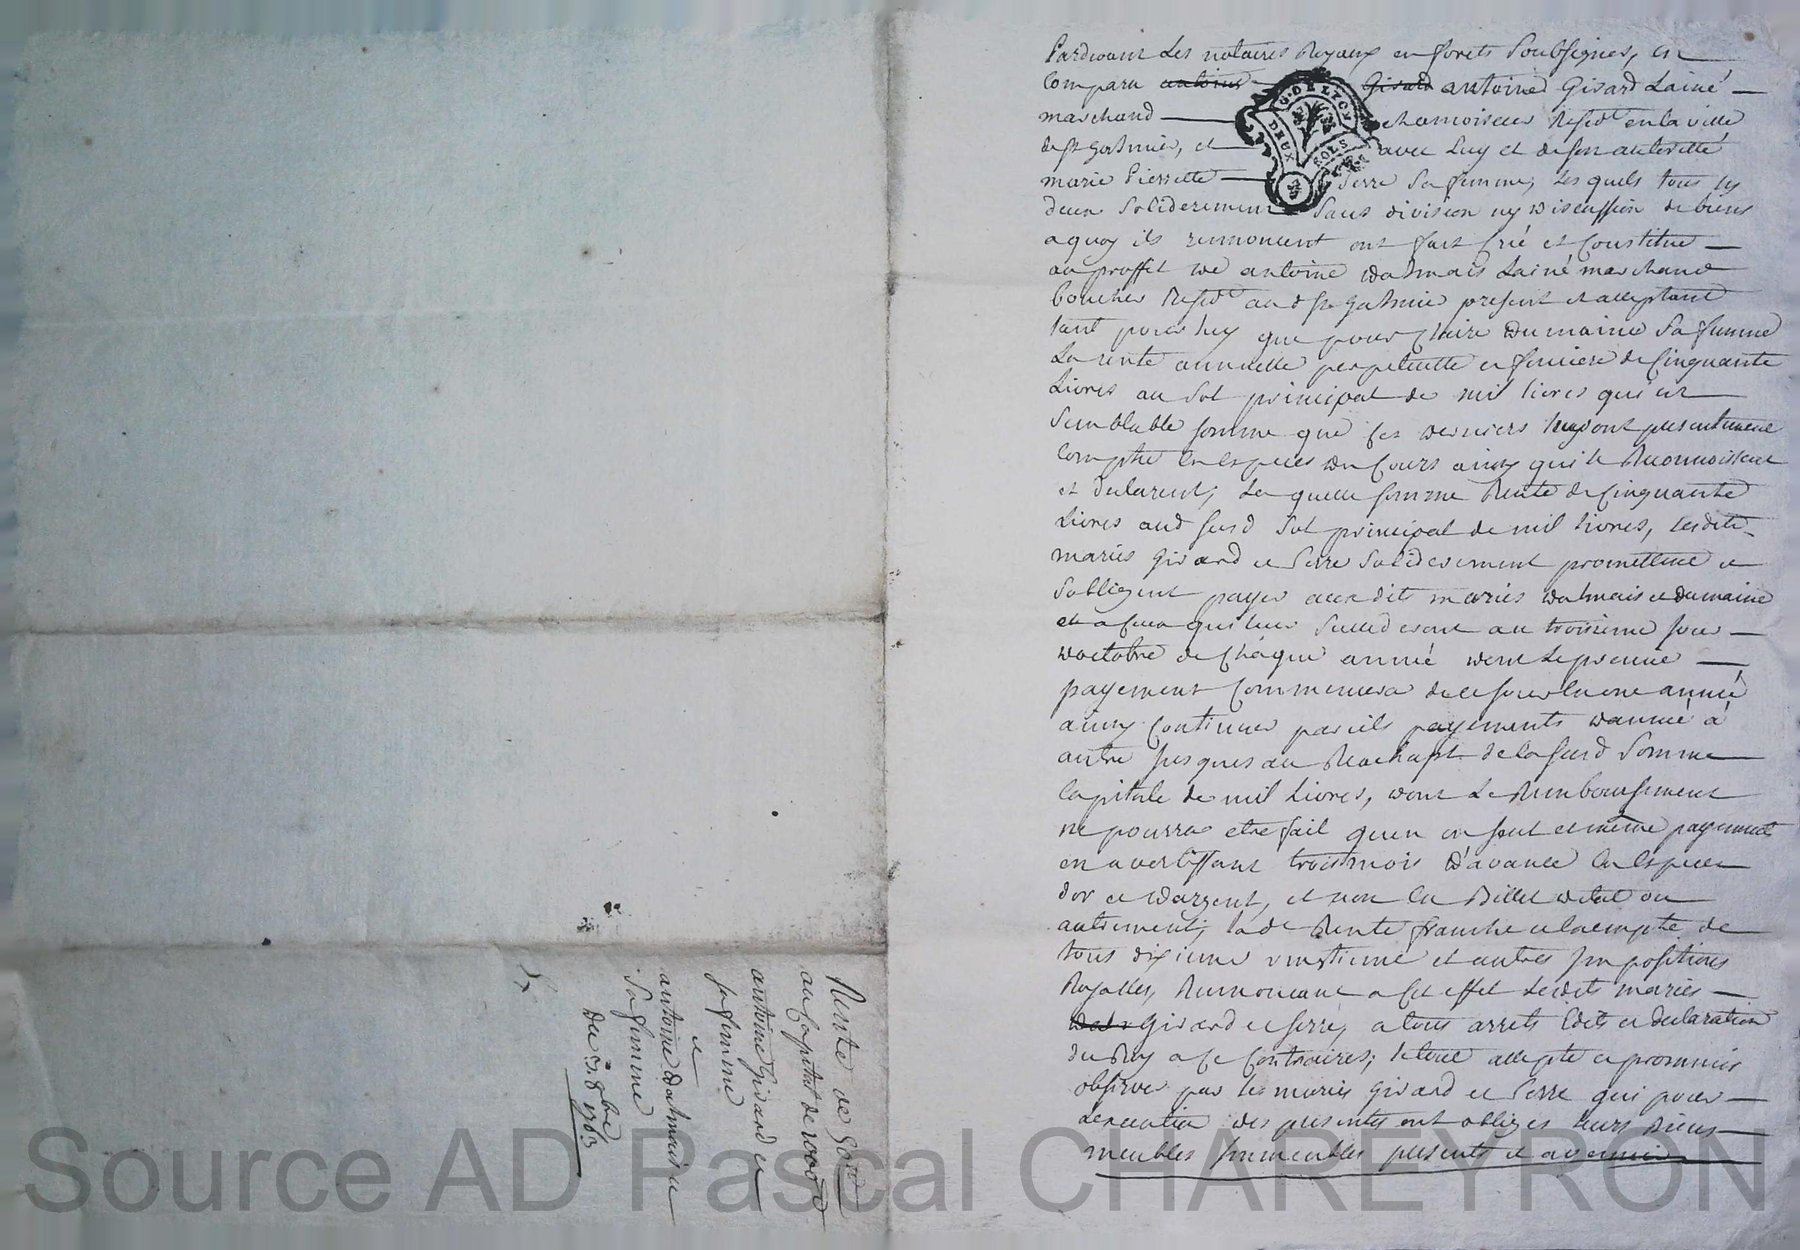 Pardevant Les notaires Royaux en forets Soubsignes, est
Comparu antoine Girard antoine Girard Lainé
marchand chamoiseur Resid.t en la ville
de st galmier, et avec Luy et de son authorité
marie Pierrette Serre Sa femme, Les quels tous les
deux Soliderement Sans division ny discussion de biens
a quoy ils renoncent ont fait Créé et Constitué
au proffit de antoine dalmais Lainé marchand
boucher Resid.t aud st galmier present et acceptant
tant pour luy que pour Claire dumaine Sa femme
La rente annuelle perpetuelle et fonciere de Cinquante
Livres au Sol principal de mil livres qui est
Semblable somme que ces derniers leur ont presentement
Compté en Especes du Cours ainsy qui le Reconnoissent
et declarent, La quelle somme Rente de Cinquante
Livres aud susd Sol principal de mil livres, lesdits
mariés Girard et Serre Soliderement promettent et
Sobligent payer aux dits mariés dalmais et dumaine
et a Ceux qui leur Succederont au troisieme jour
doctobre de Chaque année dont Le premier
payement Commencera de ce jour en une année
ainsy Continuer pareils payements dannée à
autre jusques au Rachapt de la susd Somme
Capitale de mil Livres, dont Le Remboursement
ne pourra etre fait quen un seul et même payement
en avertissant trois mois d'avance en Especes
dor et dargent, et non en Billet detat ou
autrement, lad.e Rente franche et Exempte de
tous dixieme vingtieme et autres Impositions
Royalles, Renoncant a Cet effet Lesdits mariés
Girard et serre, a tous arrets Edits et declaration
du Roy a Ce Contraires; le tout accepté et promis
observer par les mariés Girard et Serre qui pour
Lexecution des presentes ont obliges leurs Biens
meubles Immeubles presents et avenir
Rente de 50tt
au Capital de 1000tt
antoine Girard et
sa femme
a
antoine dalmais et
Sa femme
du 3. 8bre 1763
DEUX SOLS
G. DE LYON
Source AD Pascal CHAREYRON